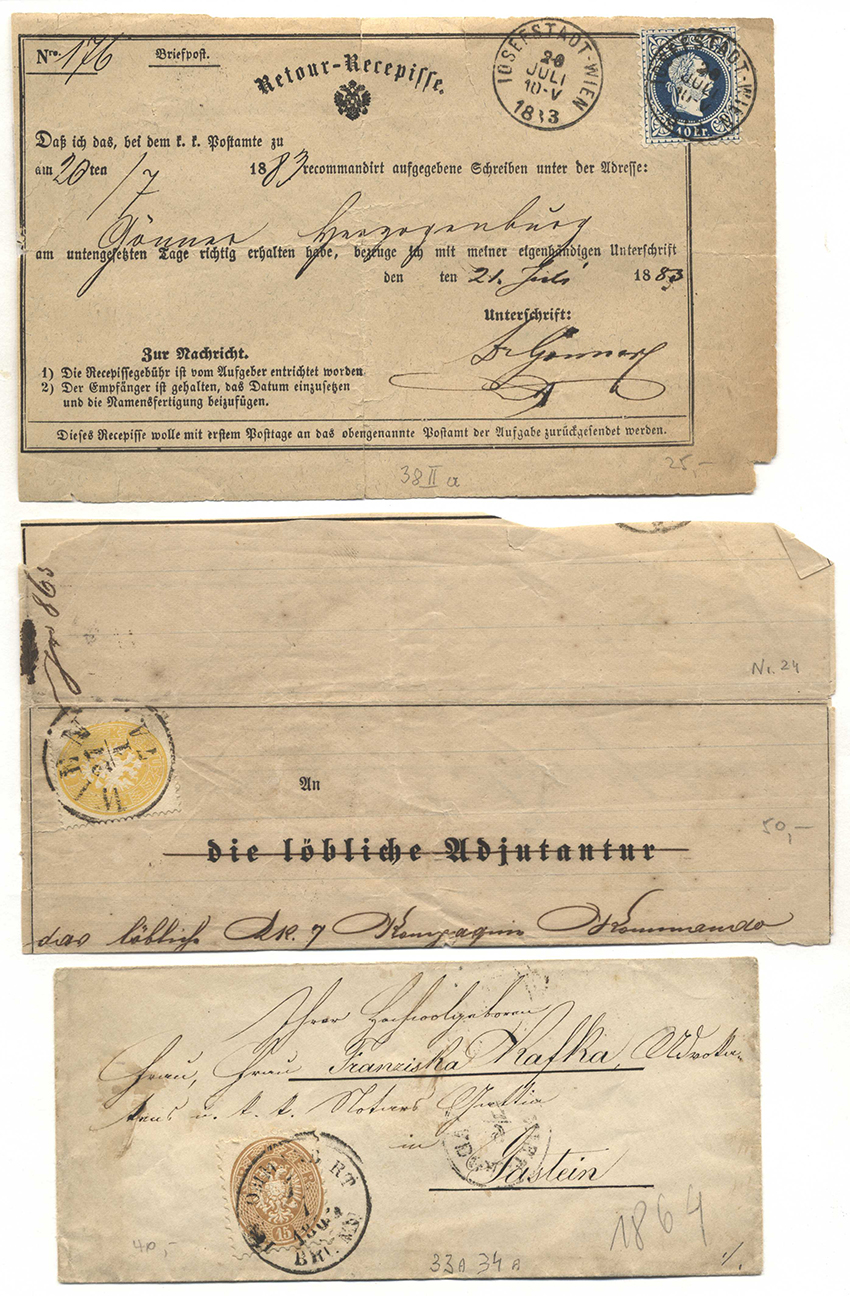 Nro. 176
Briefpost.
Retour-Recepisse.
JOSEFSTADT-WIEN
20
JULI
10-V
1883
10 kr.
Daß ich das, bei dem k. k. Postamte zu
am 20ten /7 1883 recommandirt aufgegebene Schreiben unter der Adresse:
Gönner Herzogenburg
am untengesetzten Tage richtig erhalten habe, bezeuge ich mit meiner eigenhändigen Unterschrift
den ten 21. Juli 1883
Unterschrift:
Dr Gönner
Zur Nachricht.
1) Die Recepissegebühr ist vom Aufgeber entrichtet worden
2) Der Empfänger ist gehalten, das Datum einzusetzen
und die Namensfertigung beizufügen.
Dieses Recepisse wolle mit erstem Posttage an das obengenannte Postamt der Aufgabe zurückgesendet werden.
38 II a
25,-
865
Nr. 24
WIEN
An
50,-
die löbliche Adjutantur
das löbliche 7 Kompagnie Kommando
Ihrer Hochwolgeboren
Frau, Frau Franziska Kafka, Advoka-
tens u. k. k. Notars Gattin
in
Gastein
15
1864
40,-
33A 34A
./.